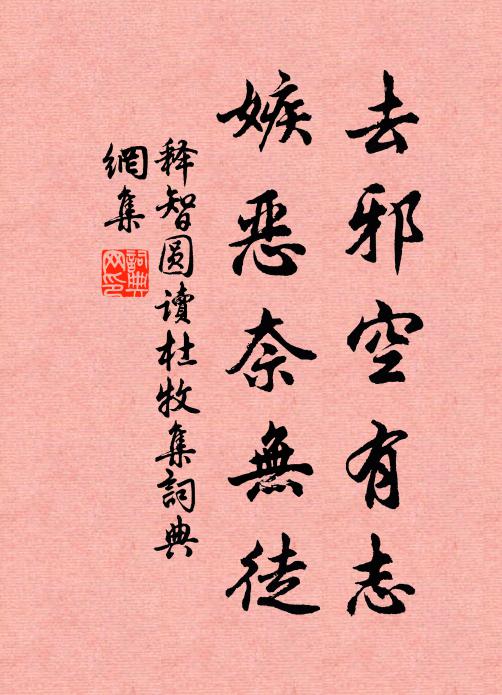 去邪空有志
嫉恶奈無徒
释智圆讀杜牧集詞典
網集
詞典网印